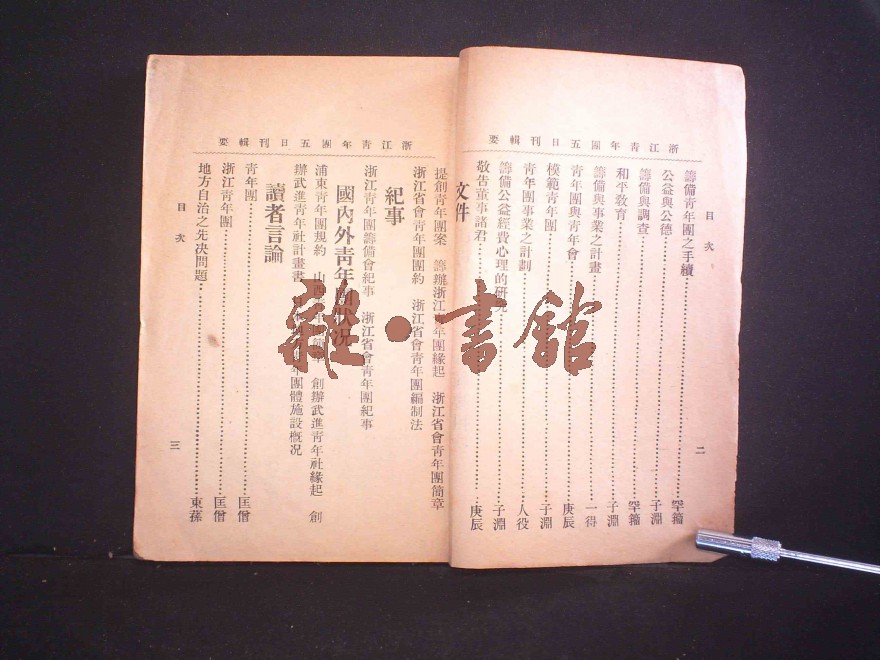 浙江青年團五日刊輯要
目次
二
籌備青年團之手續
公益與公德 子淵
籌備與調查
和平教育 子淵
籌備與事業之計畫 一得
青年團與青年會 庚辰
模範青年團 子淵
青年團事業之計劃 人役
籌備公益經費心理的研究 子淵
敬告董事諸君 庚辰
文件
浙江青年團五日刊輯要
提創青年團案 籌辦浙江青年團緣起 浙江省會青年團簡章
浙江省會青年團團約 浙江省會青年團編制法
紀事
浙江青年團籌備會紀事 浙江省會青年團紀事
國內外青年團狀況
浦東青年團規約 山西 創辦武進青年社緣起 創
辦武進青年社計畫書 年團體施設概况
讀者言論
青年團 匡僧
浙江青年團 匡僧
地方自治之先决問題 東蓀
目次
三
雜·書館